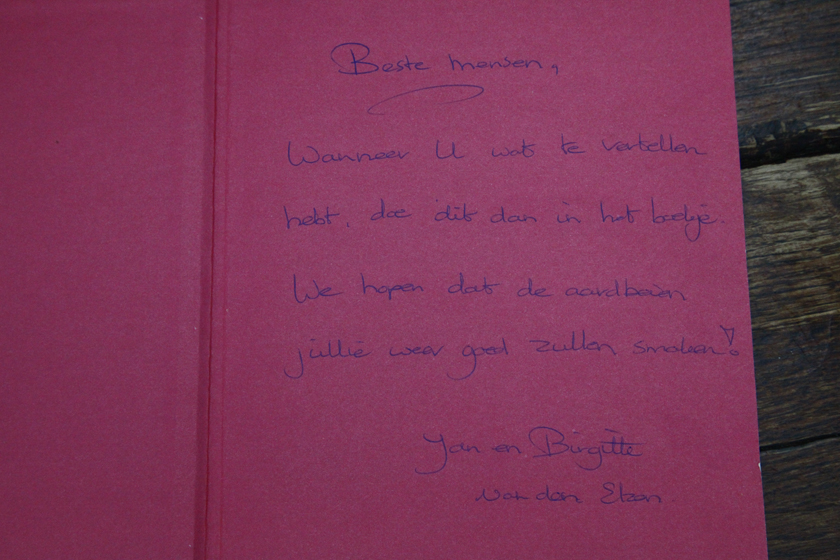 Beste mensen,
Wanneer U wat te vertellen
hebt, doe dit dan in het boekje.
We hopen dat de aardbeien
jullie weer goed zullen smaken!
Jan en Birgitte
van den Elzen